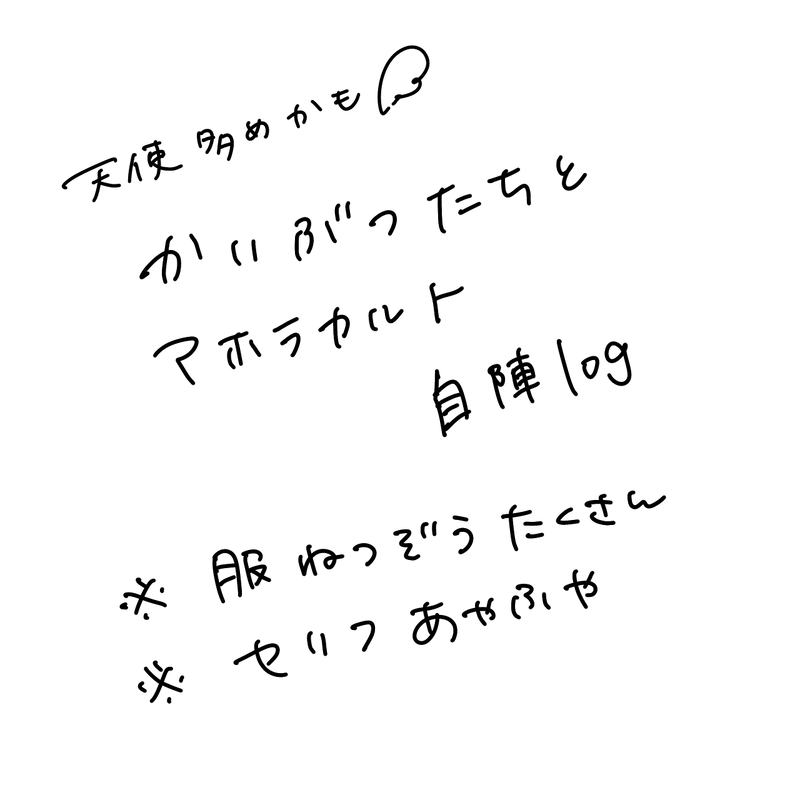 天使多めかも
かいぶつたちと
マホラカルト
自陣log
※ 服ねつぞうたくさん
※ セリフあやふや